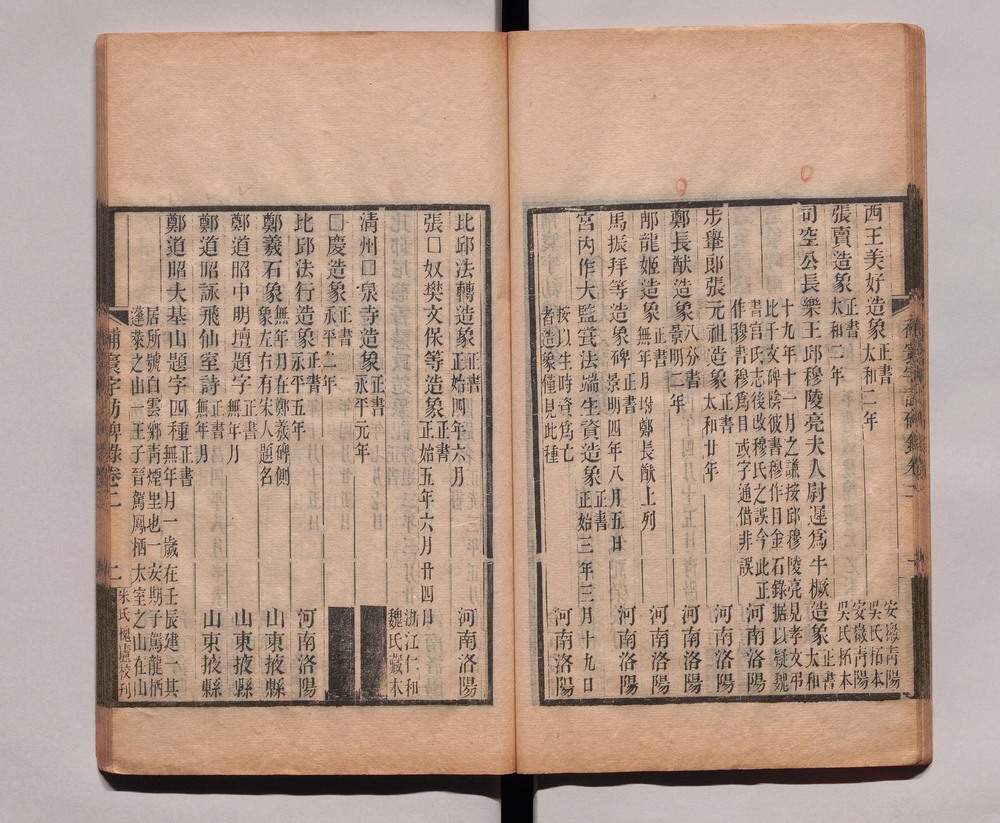 西王美好造象 正書 太和二年 安徽青陽吳氏拓本
張賣造象 正書 太和二年 安徽青陽吳氏拓本
司空公長樂王邱穆陵亮夫人尉遲為牛橛造象 正書 太和
十九年十一月之謙按邱穆陵亮見孝文弔
比干文碑陰彼書穆作目金石錄据以疑魏
書官氏志後改穆氏之誤今此正
作穆書穆爲目或字通借非誤 河南洛陽
步轝郎張元祖造象 正書 太和廿年 河南洛陽
鄭長猷造象 八分書 景明二年 河南洛陽
邴龍姬造象 正書 無年月 坿鄭長猷上列 河南洛陽
馬振拜等造象碑 正書 景明四年八月五日 河南洛陽
宮內作大監賞法端生資造象 正書 正始三年三月十九日
按以生時資爲亡
者造象僅見此種 河南洛陽
比邱法轉造象 正書 正始四年六月 河南洛陽
張囗奴樊文保等造象 正書 正始五年六月廿四日 浙江仁和魏氏藏木
清州囗泉寺造象 正書 永平元年
囗慶造象 正書 永平二年
比邱法行造象 正書 永平五年 河南洛陽
鄭羲石象 無年月在鄭羲碑側象左右有宋人題名 山東掖縣
鄭道昭中明壇題字 正書 無年月 山東掖縣
鄭道昭詠飛仙室詩 正書 無年月 山東掖縣
鄭道昭大基山題字四種 正書 無年月一歲在壬辰建一其
居所號自雲鄉青煙里也一安期子駕龍栖
蓬萊之山一王子晉駕鳳栖太室之山在山
補寰宇訪碑錄卷二 二 朱氏槐廬校刊